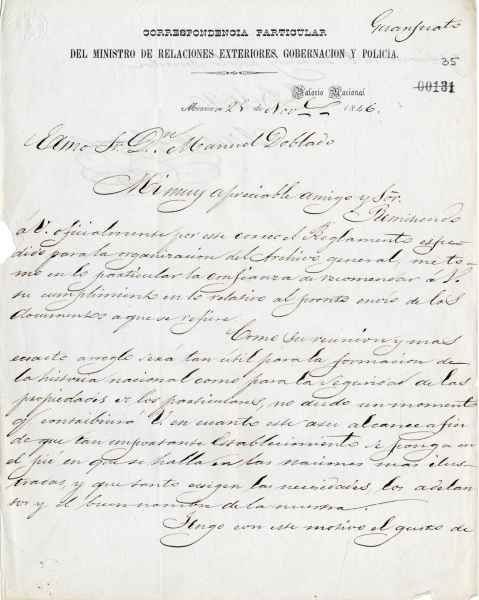 Guanajuato
CORRESPONDENCIA PARTICULAR
DEL MINISTRO DE RELACIONES EXTERIORES, GOBERNACION Y POLICIA.
35
00131
Palacio Nacional
Mexico 28 de Nov 1846.
Exmo Sr. Dn Manuel Doblado
Mi muy apreciable amigo y Sor.
Remitiendo
á V. oficialmente por este correo el Reglamento espe-
dido para la organizacion del Archivo general, me to-
mo en lo particular la confianza de recomendar á V.
su cumplimiento en lo relativo al pronto envio de los
documentos a que se refiere.
Como su reunion y mas
exacto arreglo será tan util para la formacion de
la historia nacional como para la seguridad de las
propiedades de los particulares, no dudo un momento
q contribuirá V. en cuanto este a su alcance a fin
de que tan importante establecimiento se ponga en
el pié en que se halla en las naciones mas ilus-
tradas, y que tanto exigen las necesidades, los adelan-
tos y el buen nombre de la nuestra.
Tengo con este motivo el gusto de